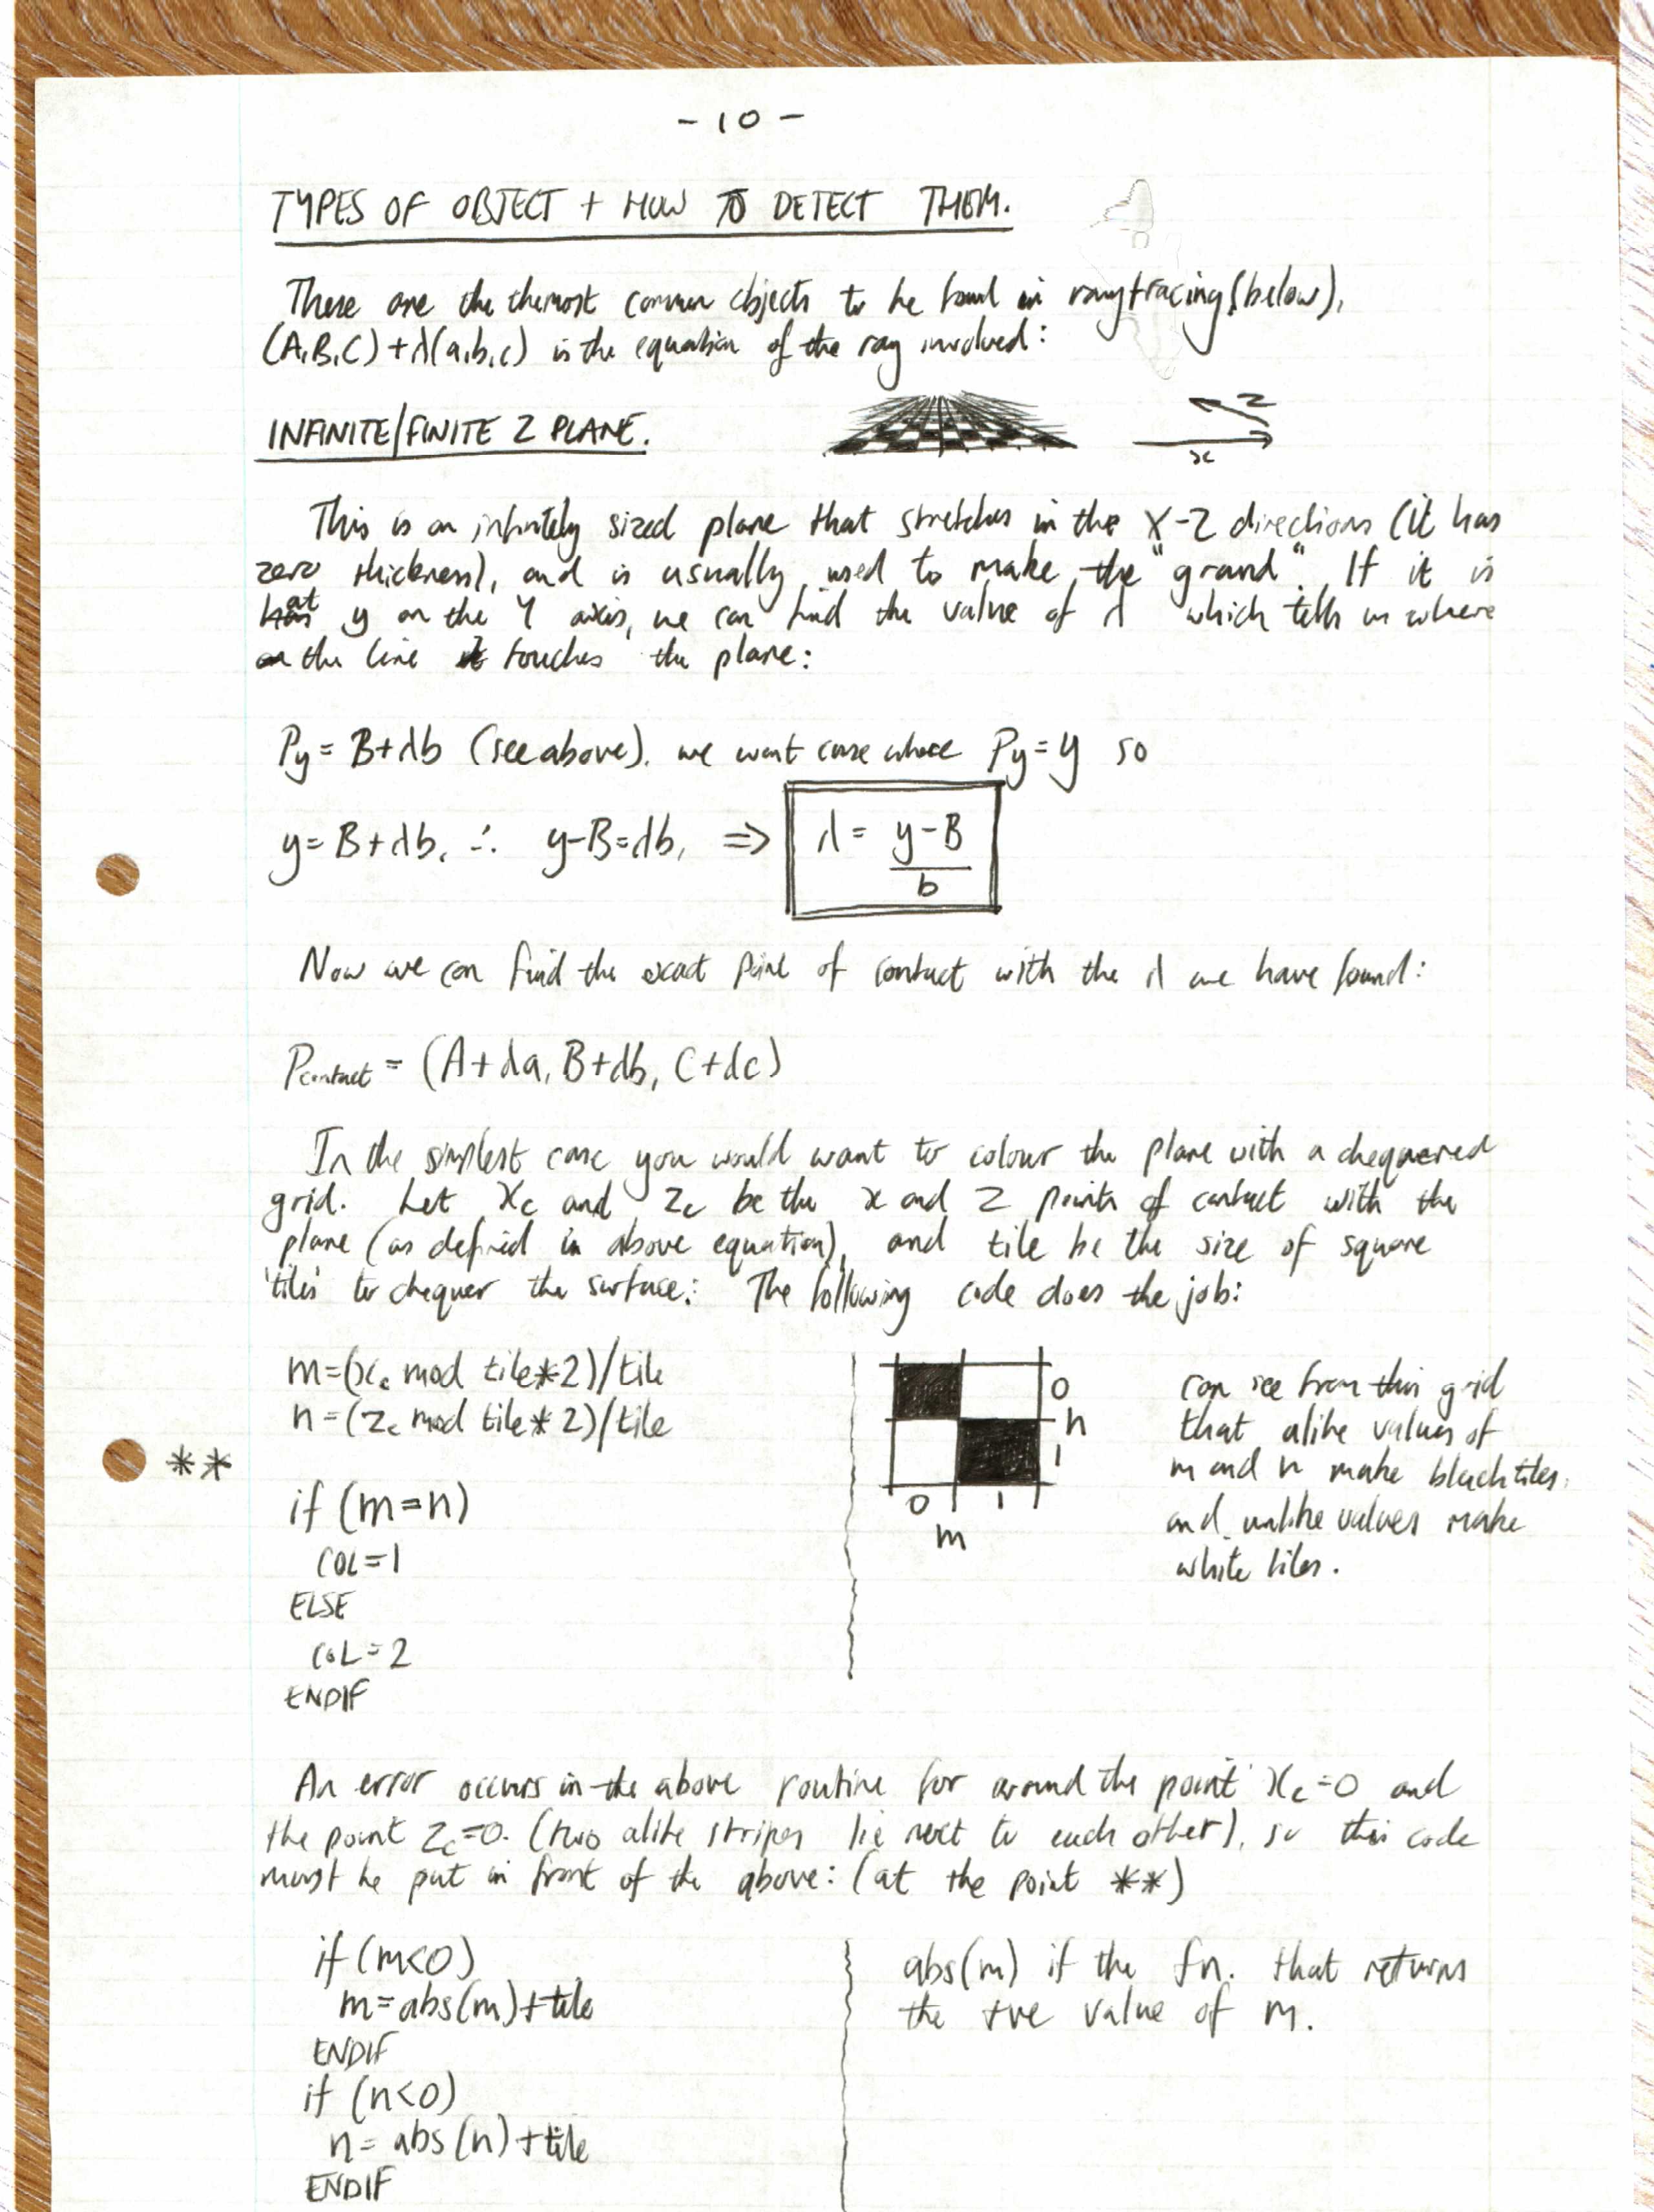 - 10 -
TYPES OF OBJECT + HOW TO DETECT THEM.
There are the themost common objects to be found in raytracing (below),
(A,B,C) + λ(a,b,c) is the equation of the ray involved:
INFINITE/FINITE Z PLANE.
z
x
This is an infinitely sized plane that stretches in the X-Z directions (it has
zero thickness), and is usually used to make the "ground". If it is
at y on the Y axis, we can find the value of λ which tells us where
the line touches the plane:
Py = B+λb (see above). we want case where Py = y so
y = B+λb, ∴ y-B=λb, ⇒ λ = y-B / b
Now we can find the exact point of contact with the λ we have found:
Pcontact = (A+λa, B+λb, C+λc)
In the simplest case you would want to colour the plane with a chequered
grid. Let xc and zc be the x and z points of contact with the
plane (as defined in above equation), and tile be the size of square
'tiles' to chequer the surface: The following code does the job:
m=(xc mod tile*2)/tile
n=(zc mod tile*2)/tile
**
if (m=n)
COL=1
ELSE
COL=2
ENDIF
0
n
1
0 1
m
can see from this grid
that alike values of
m and n make black tiles,
and unlike values make
white tiles.
An error occurs in the above routine for around the point xc=0 and
the point zc=0. (two alike stripes lie next to each other), so this code
must be put in front of the above: (at the point **)
if (m<0)
m=abs(m)+tile
ENDIF
if (n<0)
n=abs(n)+tile
ENDIF
abs(m) if the fn. that returns
the +ve value of m.